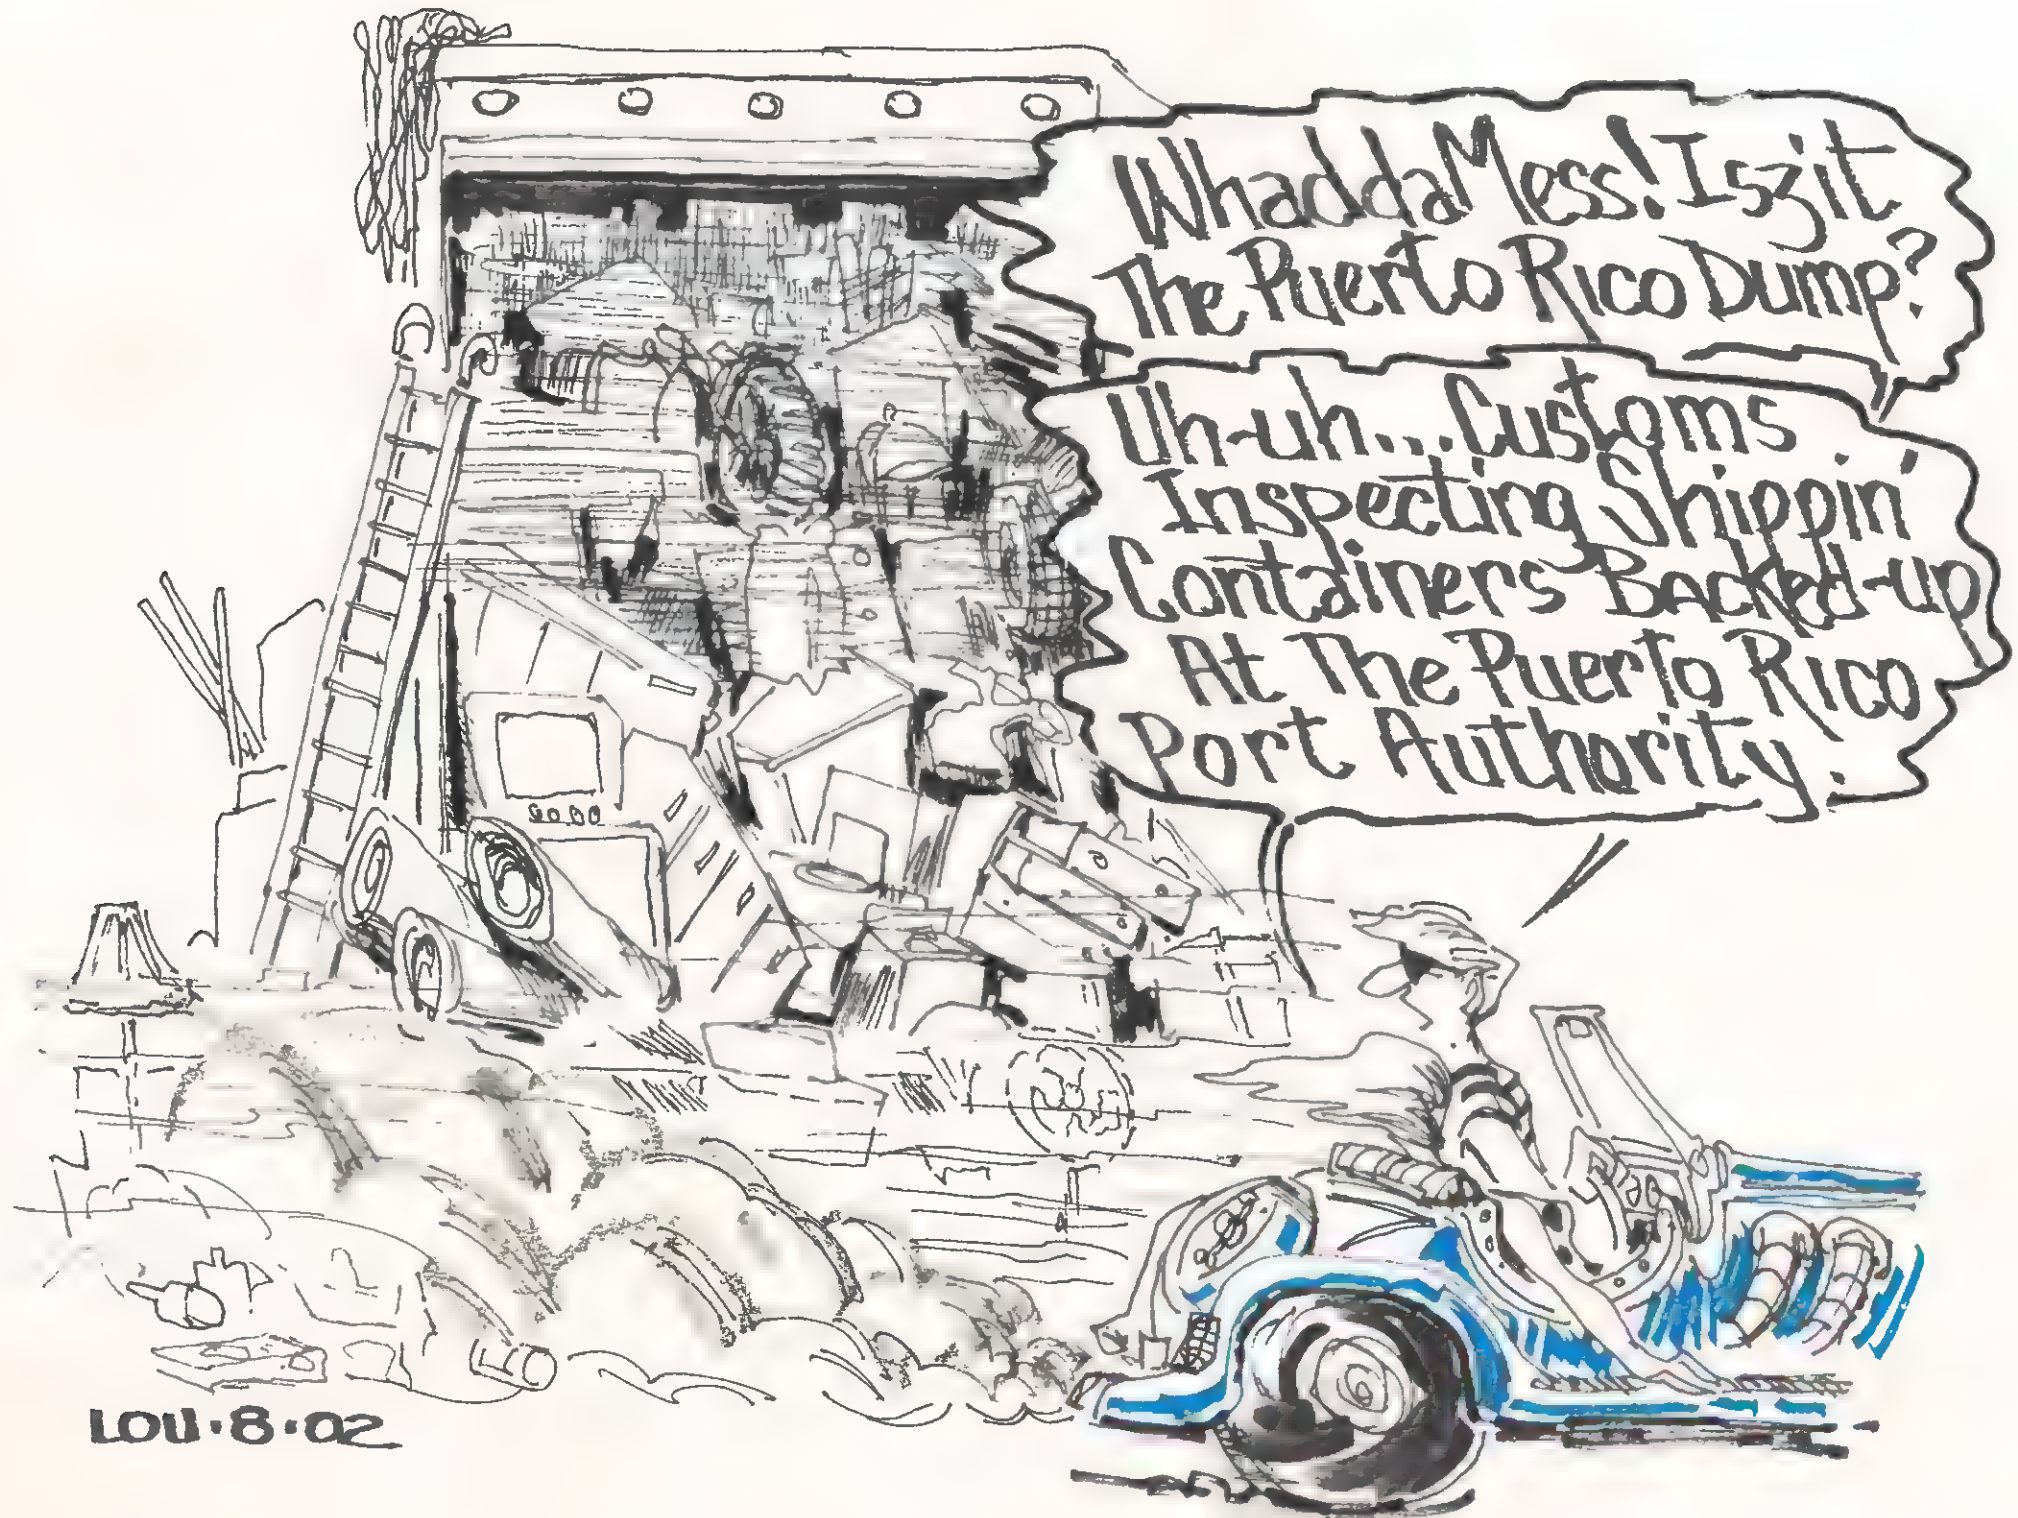 Whadda Mess! Iszit
The Puerto Rico Dump?
Uh-uh... Customs
Inspecting Shippin'
Containers Backed-up
At The Puerto Rico
Port Authority.
LOU·8·02